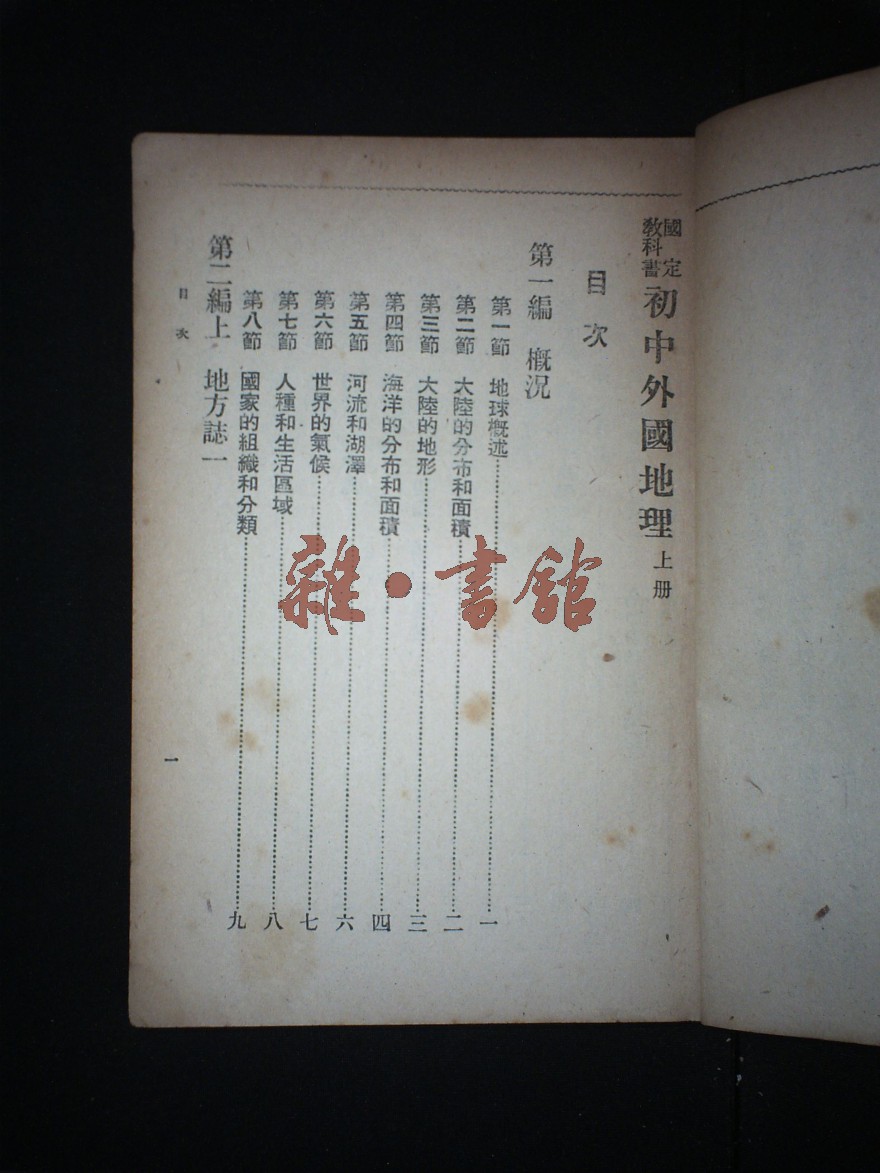 國定教科書 初中外國地理 上册
目次
第一編 概況
第一節 地球概述 一
第二節 大陸的分布和面積 二
第三節 大陸的地形 三
第四節 海洋的分布和面積 四
第五節 河流和湖澤 六
第六節 世界的氣候 七
第七節 人種和生活區域 八
第八節 國家的組織和分類 九
第二編上 地方誌一
目次
一
雜·書館